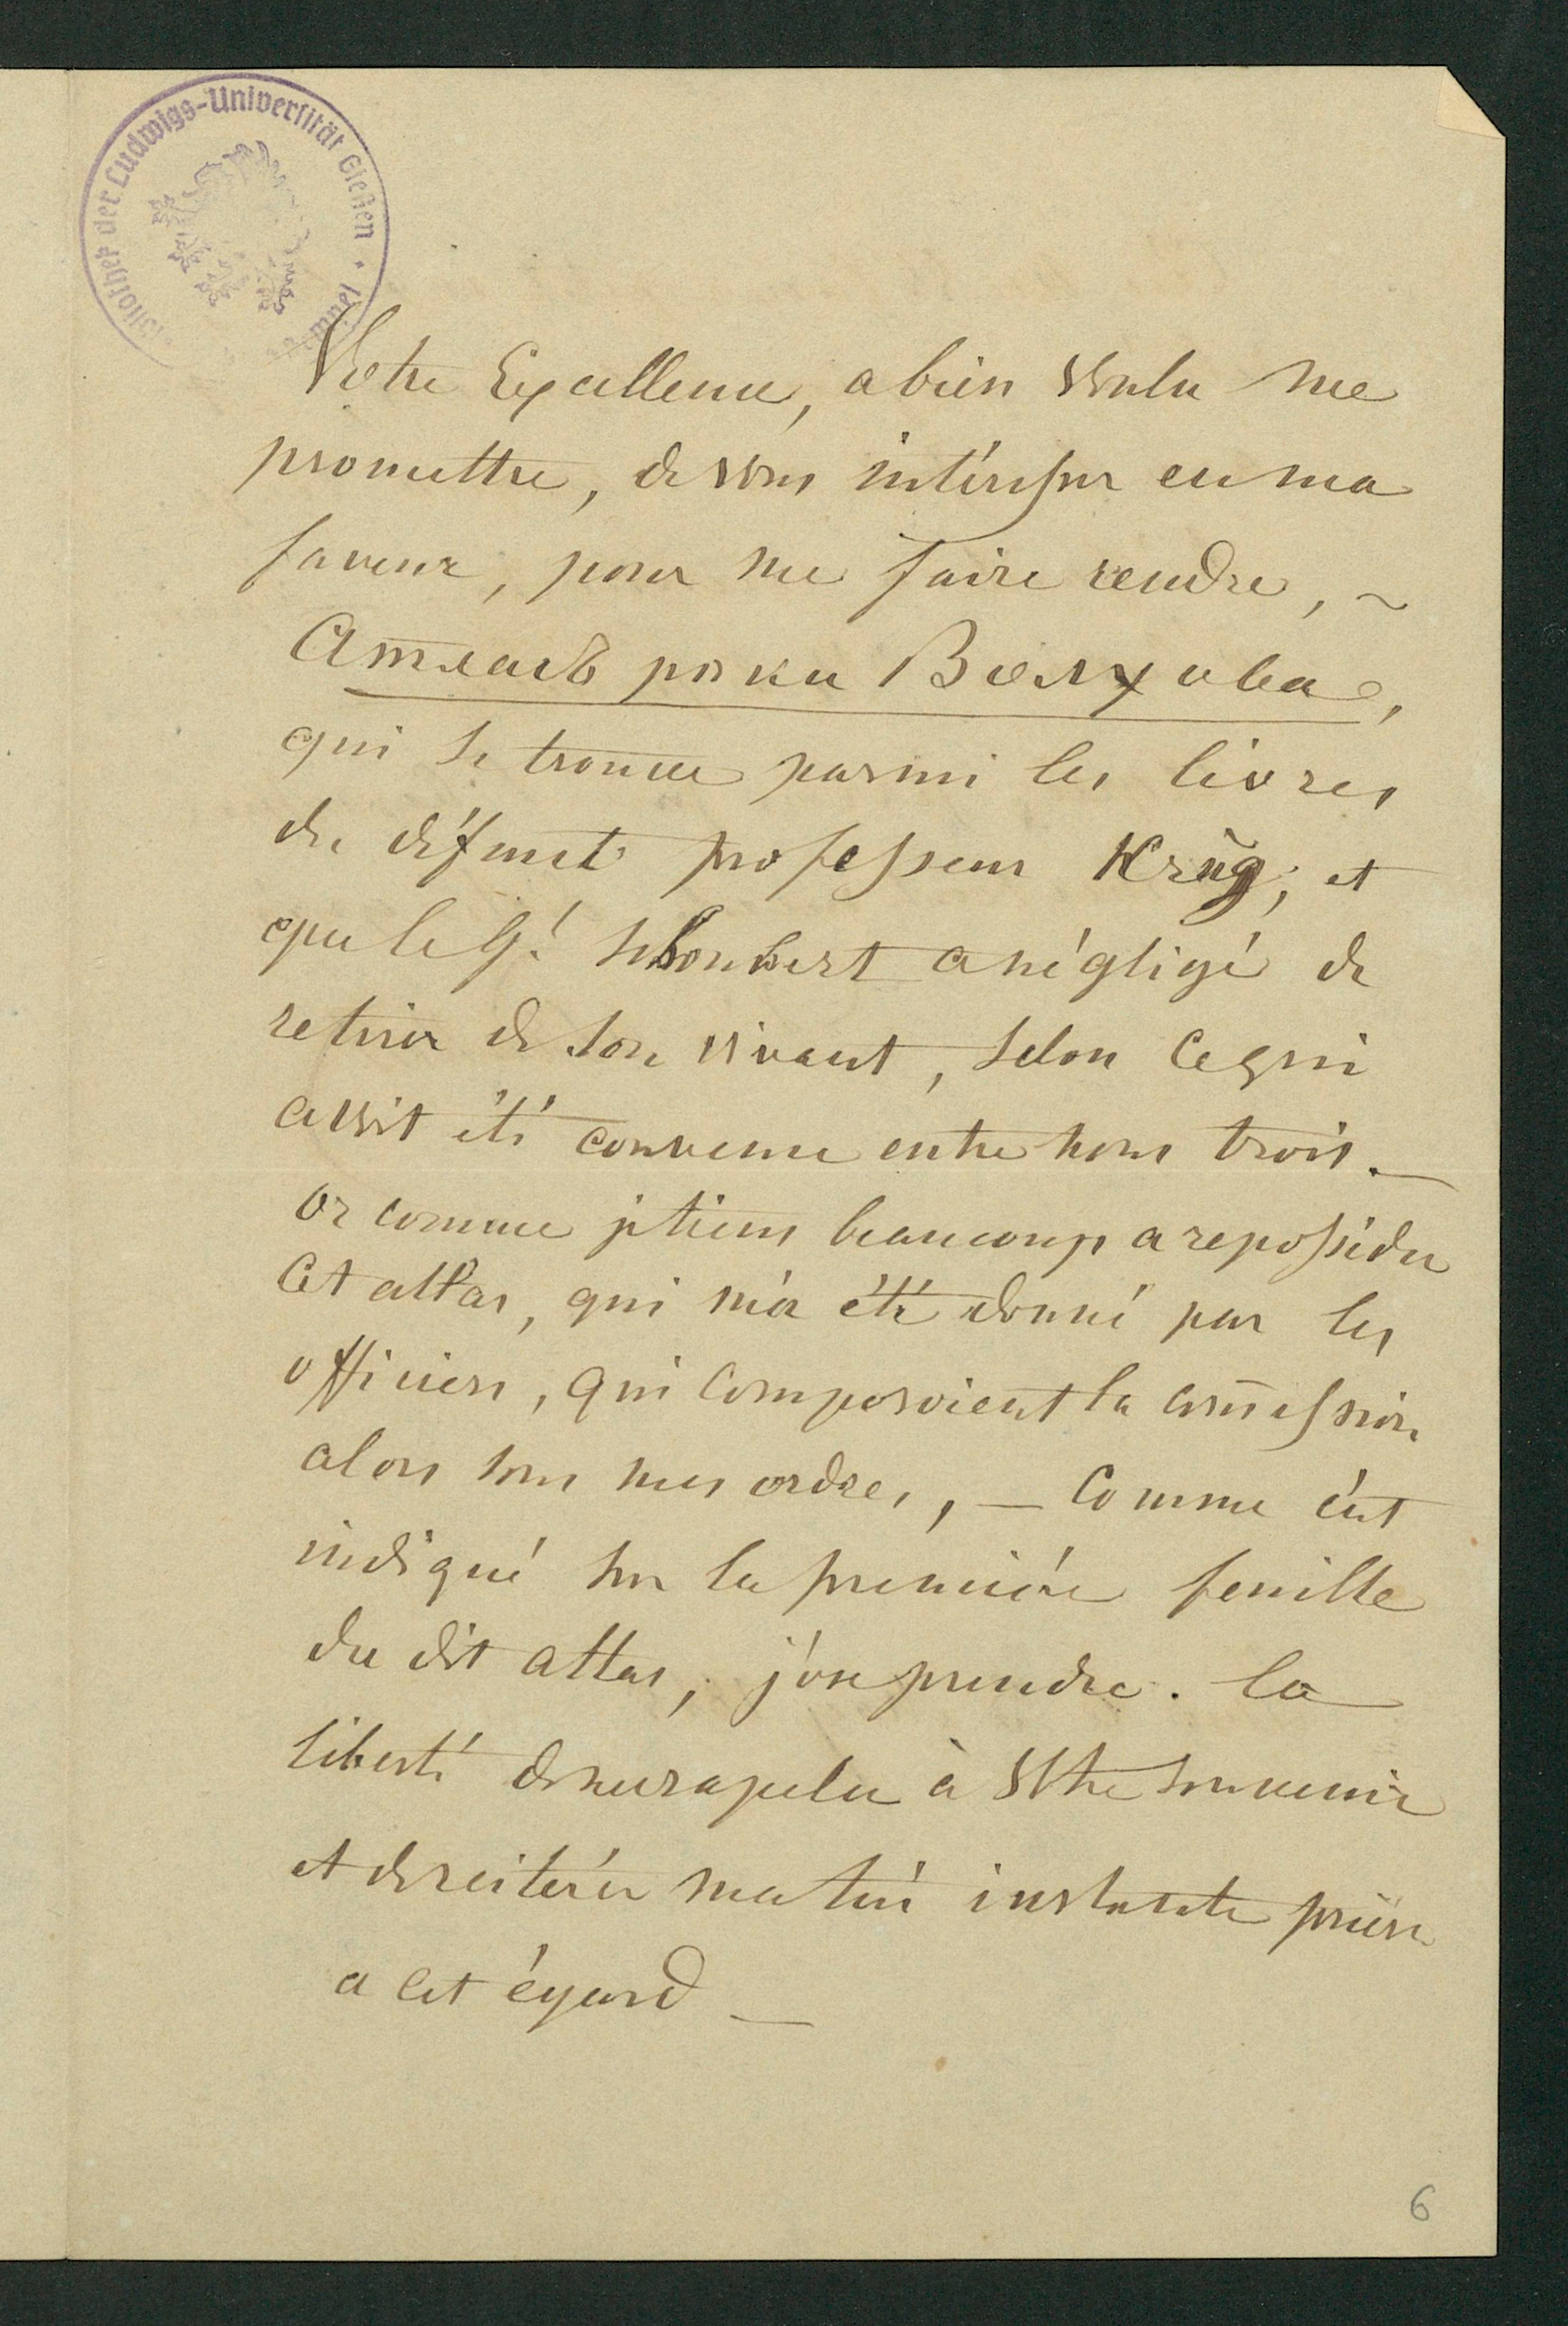 Bibliothek der Ludwigs-Universität Gießen
Votre Excellence, a bien voulu me
promettre, de vous intéresser en ma
faveur, pour me faire rendre, ~
Атласъ рѣки Волхова,
qui se trouve parmi les livres
du défunt professeur Krŭg, et
que le Gl. Schoubert a négligé de
retirer de son vivant, selon ce qui
avoit été convenu entre nous trois. —
Or comme je tiens beaucoup a reposséder
Cet atlas, qui m'a été donné par les
officiers, qui composoient la com̄ission
alors sous mes ordres, — Comme c'est
indiqué sur la première feuille
du dit atlas, j'ose prendre. la
liberté de me rapeler à Votre souvenir
et de reitérér ma très instante prière
a cet égard —
6